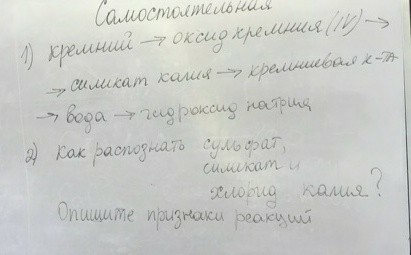 Самостоятельная
1) кремний → оксид кремния (IV) →
→ силикат калия → кремниевая к-та
→ вода → гидроксид натрия
2) Как распознать сульфат,
силикат и
хлорид калия?
Опишите признаки реакций